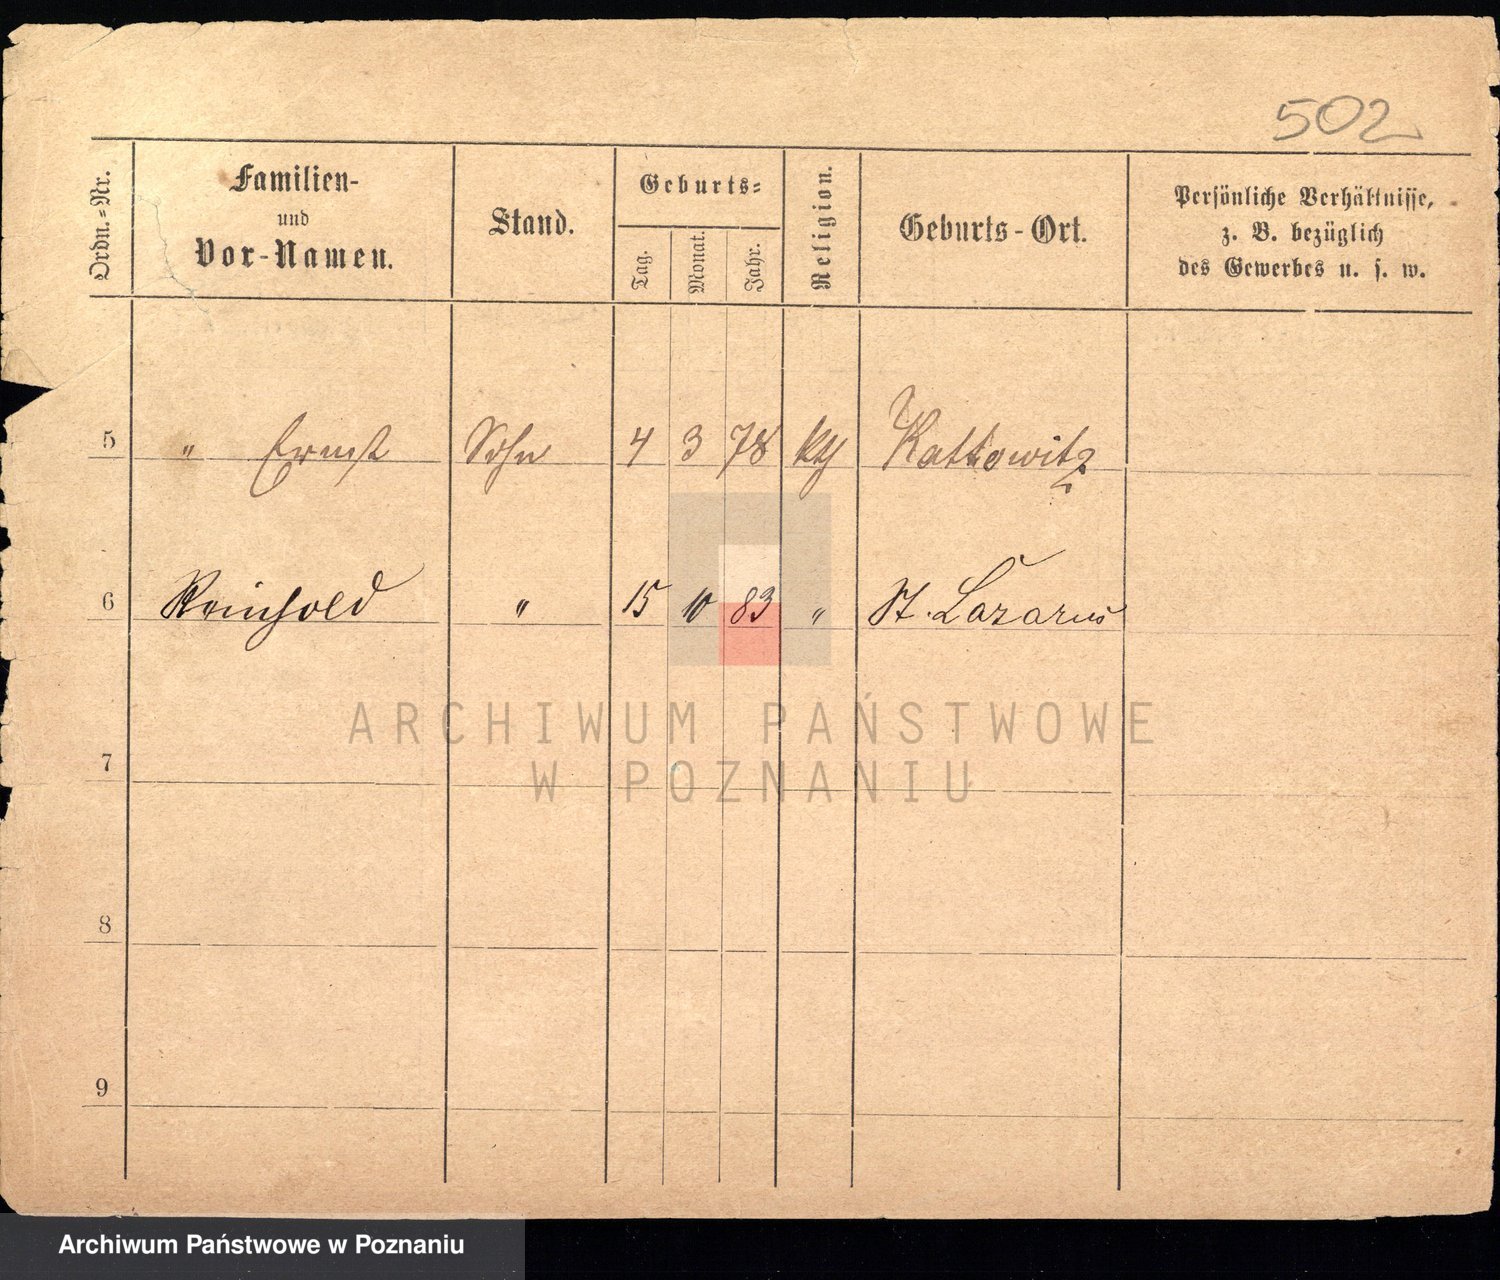 502
Ordn.-Nr.
Familien-
und
Vor-Namen.
Stand.
Geburts-
Tag.
Monat.
Jahr.
Religion.
Geburts-Ort.
Persönliche Verhältnisse,
z. B. bezüglich
des Gewerbes u. s. w.
5 " Ernst Sohn 4 3 78 kth Kattowitz
6 Reinhold " 15 10 83 " St. Lazarus
ARCHIWUM PAŃSTWOWE
W POZNANIU
7
8
9
Archiwum Państwowe w Poznaniu